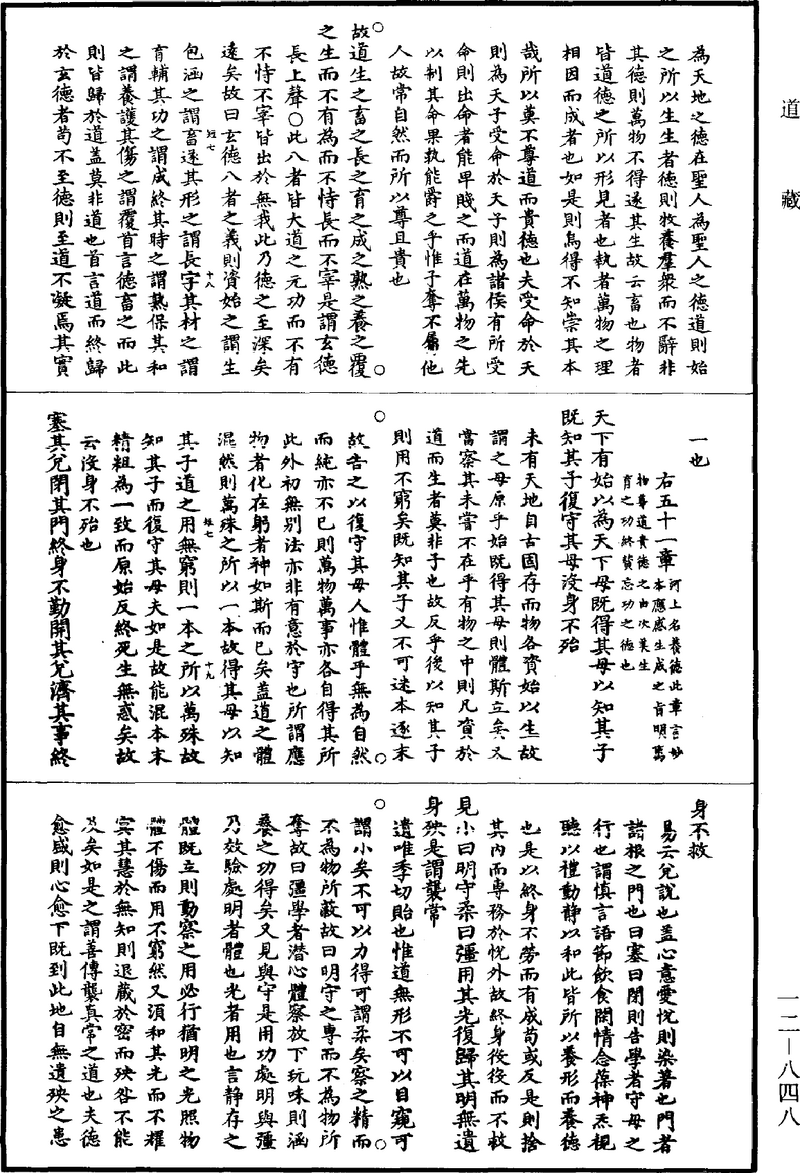 道藏
為天地之德在聖人為聖人之德道則始
之所以生生者德則牧養羣衆而不辭非
其德則萬物不得遂其生故云畜也物者
皆道德之所以形見者也執者萬物之理
相因而成者也如是則焉得不知崇其本
哉所以莫不尊道而貴德也夫受命於天
則為天子受命於天子則為諸侯有所受
命則出命者能卑賤之而道在萬物之先
以制其命果孰能爵之乎惟予奪不屬他
人故常自然而所以尊且貴也
故道生之畜之長之育之成之熟之養之覆
之生而不有為而不恃長而不宰是謂玄德
長上聲○此八者皆大道之元功而不有
不恃不宰皆出於無我此乃德之至深矣
遠矣故曰玄德八者之義則資始之謂生
包涵之謂畜遂其形之謂長字其材之謂
育輔其功之謂成終其時之謂熟保其和
之謂養護其傷之謂覆首言德畜之而此
則皆歸於道蓋莫非道也首言道而終歸
於玄德者苟不至德則至道不凝焉其實
一也
右五十一章河上名養德此章言妙
本應感生成之旨明萬
物尊道貴德之由次美生
育之功終贊忘功之德也
天下有始以為天下母既得其母以知其子
既知其子復守其母沒身不殆
未有天地自古固存而物各資始以生故
謂之母原乎始既得其母則體斯立矣又
當察其未嘗不在乎有物之中則凡資於
道而生者莫非子也故反乎後以知其子
則用不窮矣既知其子又不可迷本逐末
故告之以復守其母人惟體乎無為自然
而純亦不已則萬物萬事亦各自得其所
此外初無別法亦非有意於守也所謂應
物者化在躬者神如斯而已矣蓋道之體
混然則萬殊之所以一本故得其母以知
其子道之用無窮則一本之所以萬殊故
知其子而復守其母夫如是故能混本末
精粗為一致而原始反終死生無惑矣故
云沒身不殆也
塞其兌閉其門終身不勤開其兌濟其事終
身不救
易云兌說也蓋心意愛悅則染著也門者
諸根之門也曰塞曰閉則告學者守母之
行也謂慎言語節飲食閑情念葆神炁視
聽以禮動靜以和此皆所以養形而養德
也是以終身不勞而有成苟或反是則捨
其內而專務於悅外故終身役役而不救
見小曰明守柔曰彊用其光復歸其明無遺
身殃是謂襲常
遺唯季切貽也惟道無形不可以目窺可
謂小矣不可以力得可謂柔矣察之精而
不為物所蔽故曰明守之專而不為物所
奪故曰彊學者潛心體察放下玩味則涵
養之功得矣又見與守是用功處明與彊
乃效驗處明者體也光者用也言靜存之
體既立則動察之用必行猶明之光照物
體不傷而用不窮然又須和其光而不耀
冥其慧於無知則退藏於密而殃咎不能
及矣如是之謂善傳襲真常之道也夫德
愈盛則心愈下既到此地自無遺殃之患
短七
十八
短七
十九
一二－八四八